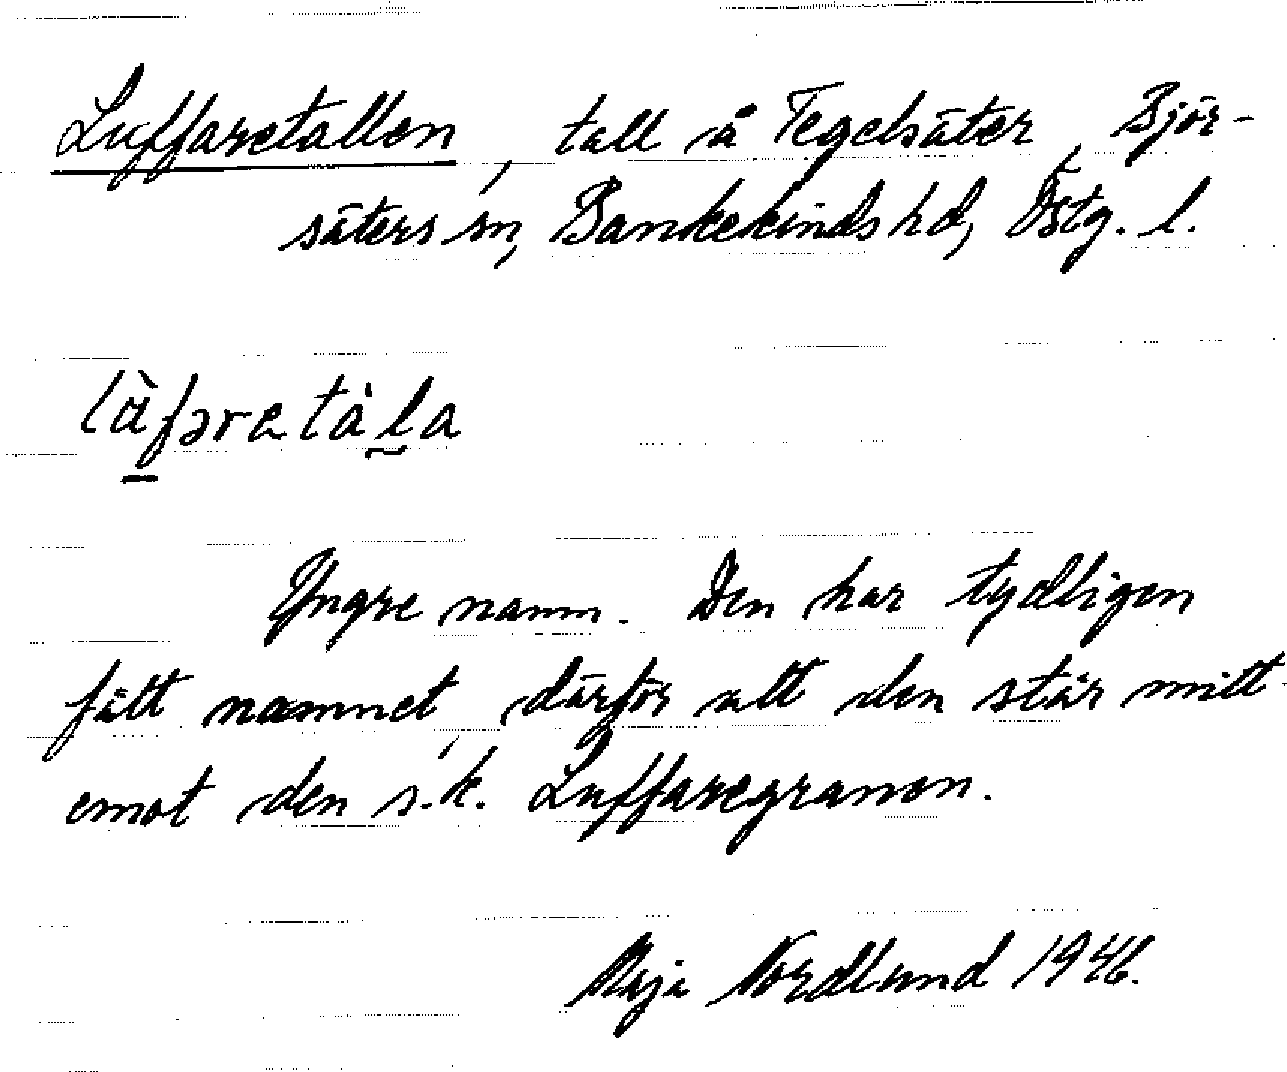 Luffaretallen, tall å Tegelsäter, Björ-
säters sn, Bankekinds hd, Östg. l.
Yngre namn. Den har tydligen
fått namnet, därför att den står mitt
emot den s.k. Luffaregranen.
Maja Nordlund 1946.